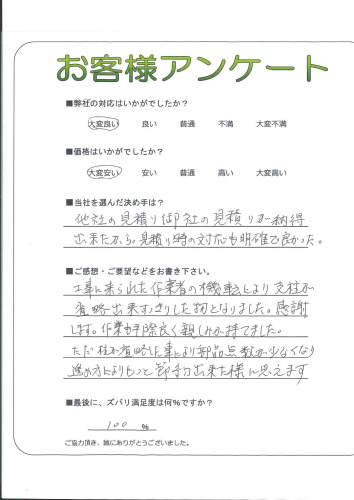 お客様アンケート
■弊社の対応はいかがでしたか?
大変良い 良い 普通 不満 大変不満
■価格はいかがでしたか?
大変安い 安い 普通 高い 大変高い
■当社を選んだ決め手は?
他社の見積り御社の見積りが納得
出来たから。見積り時の対応も明確で良かった。
■ご感想・ご要望などをお書き下さい。
工事に来られた作業者の機転により支柱が
省略出来すっきりした物となりました。感謝
します。作業も手際良く親しみが持てました。
ただ柱が省略した事により部品点数が少くなり
進め方によりもっと節約出来た様に思えます
■最後に、ズバリ満足度は何%ですか?
100 %
ご協力頂き、誠にありがとうございました。